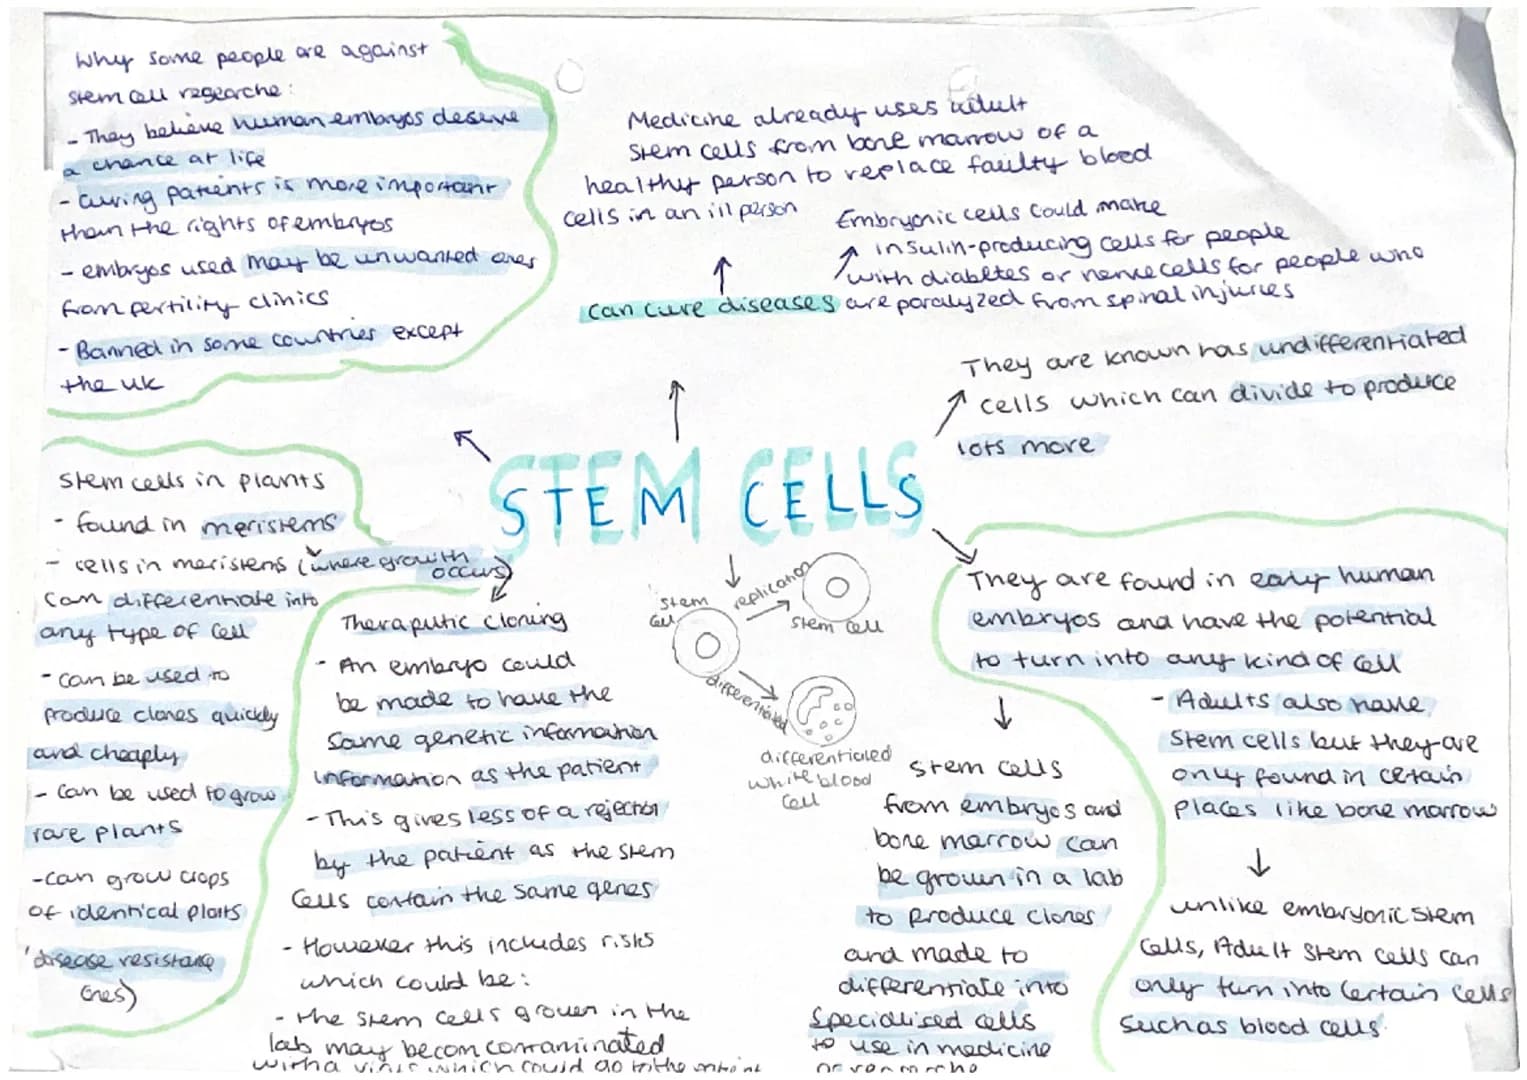 Why some people are against
stem cell researche:
- They believe human embryos deserve
a chance at life
- Curing patients is more important
than the rights of embryos
- embryos used may be unwanted ones
from fertility clinics
- Banned in some countries except
the uk
Medicine already uses adult
stem cells from bone marrow of a
healthy person to replace faulty blood
cells in an ill person
Embryonic cells could make
insulin-producing cells for people
with diabetes or nerve cells for people who
are paralyzed from spinal injuries
can cure diseases
They are known has undifferentiated
cells which can divide to produce
lots more
STEM CELLS
Stem cells in plants
- found in meristems
- cells in meristems (where growth
occurs)
can differentiate into
any type of cell
- can be used to
produce clones quickly
and cheaply
- can be used to grow
rare plants
- can grow crops
of identical plants
disease resistance
ones)
Theraputic cloning
- An embryo could
be made to have the
same genetic information
information as the patient
- This gives less of a rejection
by the patient as the stem
cells contain the same genes
- However this includes risks
which could be:
- the stem cells grown in the
lab may becom contaminated
with a virus which could go to the patient
stem
cell
replication
stem cell
differentiated
differentiated
white blood
cell
They are found in early human
embryos and have the potential
to turn into any kind of cell
stem cells
from embryos and
bone marrow can
be grown in a lab
to produce clones
and made to
differentiate into
specialised cells
to use in medicine
or researche
- Adults also have
stem cells but they are
only found in certain
places like bone marrow
unlike embryonic stem
cells, Adult stem cells can
only turn into certain cells
such as blood cells